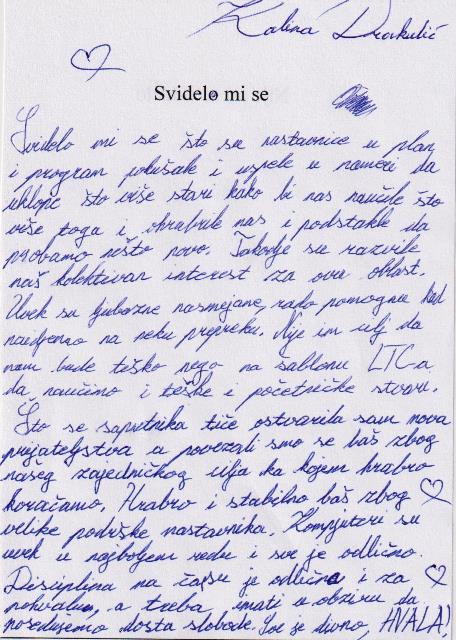 Kalina Drakulić
Svidelo mi se
Svidelo mi se što su nastavnice u plan
i program pokušale i uspele u nameri da
uklope što više stvari kako bi nas naučile što
više toga i ohrabrile nas i podstakle da
probamo nešto novo. Takodje su razvile
naš kolektivan interest za ovu oblast.
Uvek su ljubazne nasmejane, rado pomognu kad
naidjemo na neku prepreku. Nije im cilj da
nam bude teško nego na šablonu LTC-a
da naučimo i teške i početničke stvari.
Što se saputnika tiče ostvarila sam nova
prijateljstva a povezali smo se baš zbog
našeg zajedničkog cilja ka kojem hrabro
koračamo. Hrabro i stabilno baš zbog
velike podrške nastavnika. Kompjuteri su
uvek u najboljem redu i sve je odlično.
Disciplina na času je odlična i za
pohvalu, a treba imati u obziru da
posedujemo dosta slobode. Sve je divno, HVALA!